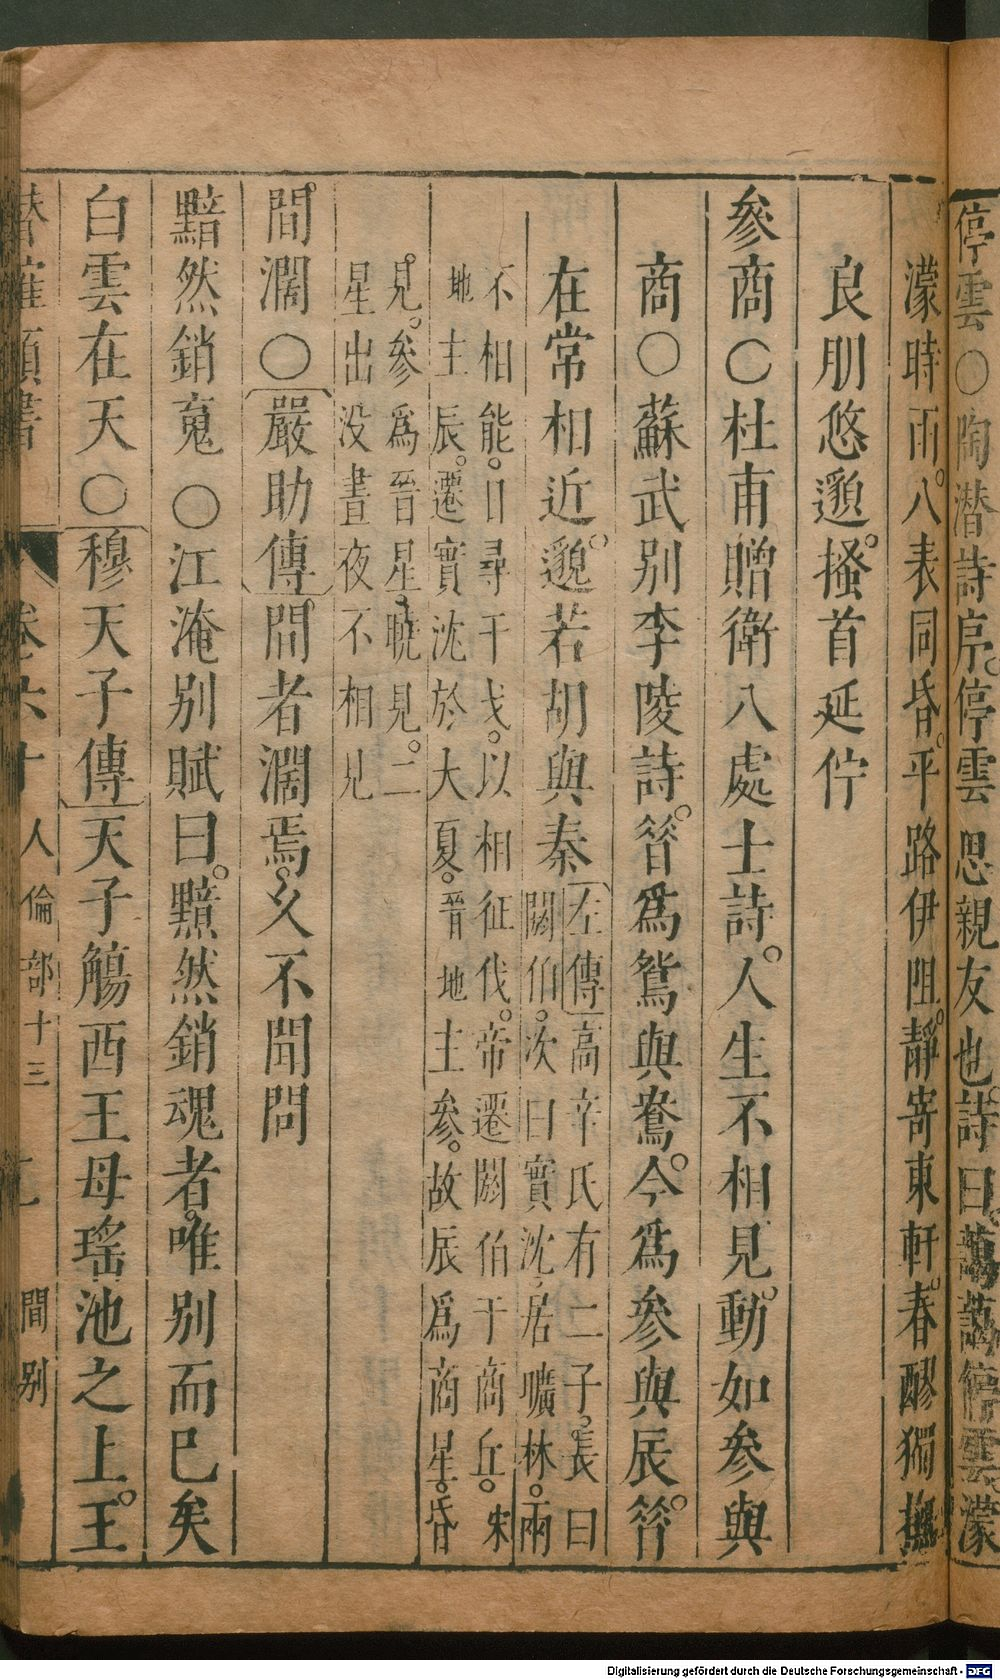 停雲○陶潜詩序。停雲思親友也。詩曰。藹藹停雲濛
濛時雨。八表同昏。平路伊阻。靜寄東軒。春醪獨撫
良朋悠邈。搔首延佇
參商○杜甫贈衛八處士詩。人生不相見。動如參與
商○蘇武別李陵詩。昔爲鴛與鴦。今爲參與辰。昔
在常相近。邈若胡與秦 左傳 高辛氏有二子。長曰
閼伯。次曰實沈。居曠林。兩
不相能。日尋干戈。以相征伐。帝遷閼伯于商丘。宋
地主辰。遷實沈於大夏。晉地主參。故辰爲商星。昏
見。參爲晉星。曉見。二
星出没晝夜不相見
間濶○嚴助傳。問者濶焉。久不聞問
黯然銷䰟○江淹别賦曰。黯然銷魂者。唯别而已矣
白雲在天○穆天子傳天子觴西王母瑶池之上。王
卷六十 人倫部十三 間别
Digitalisierung gefördert durch die Deutsche Forschungsgemeinschaft - DFG